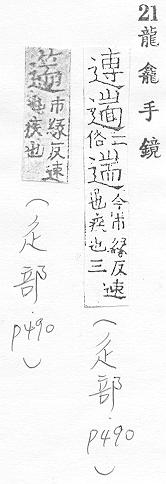 21 龍龕手鏡
二俗遄今市緣反速也疾也三
(辵部 p490)
市緣反速也疾也
(辵部 p490)